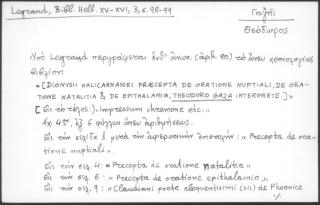 Legrand, Bibl. Hell. XV-XVI, 3, σ. 98-99
Γαζῆς
Θεόδωρος
Ὑπὸ Legrand περιγράφεται ὑπ' ἀριθ. (ἀριθ. 80) τὸ ἄνευ χρονολογίας
βιβλίον:
"[DIONYSII HALICARNASSEI PRÆCEPTA DE ORATIONE NUPTIALI, DE ORA-
TIONE NATALITIA & DE EPITHALAMIIS, THEODORO GAZA INTERPRETE.]"
(Εἰς τὸ τέλος:) Impressum chremone etc.."
Ἐκ 4ου, ἐξ 6 φύλλων ἄνευ ἀριθμήσεως.
Εἰς τὴν σελίδα 1 μετὰ τὴν ἀφιέρωσιν ἐπιστολήν: "Precepta de ora-
tione nuptiali".
Εἰς τὴν σελ. 4: "Precepta de oratione natalitia"
Εἰς τὴν σελ. 6: "Precepta de oratione epithalamio"
Εἰς τὴν σελ. 9: "Claudiani poete eloquentissimi (sic) de Phoenice